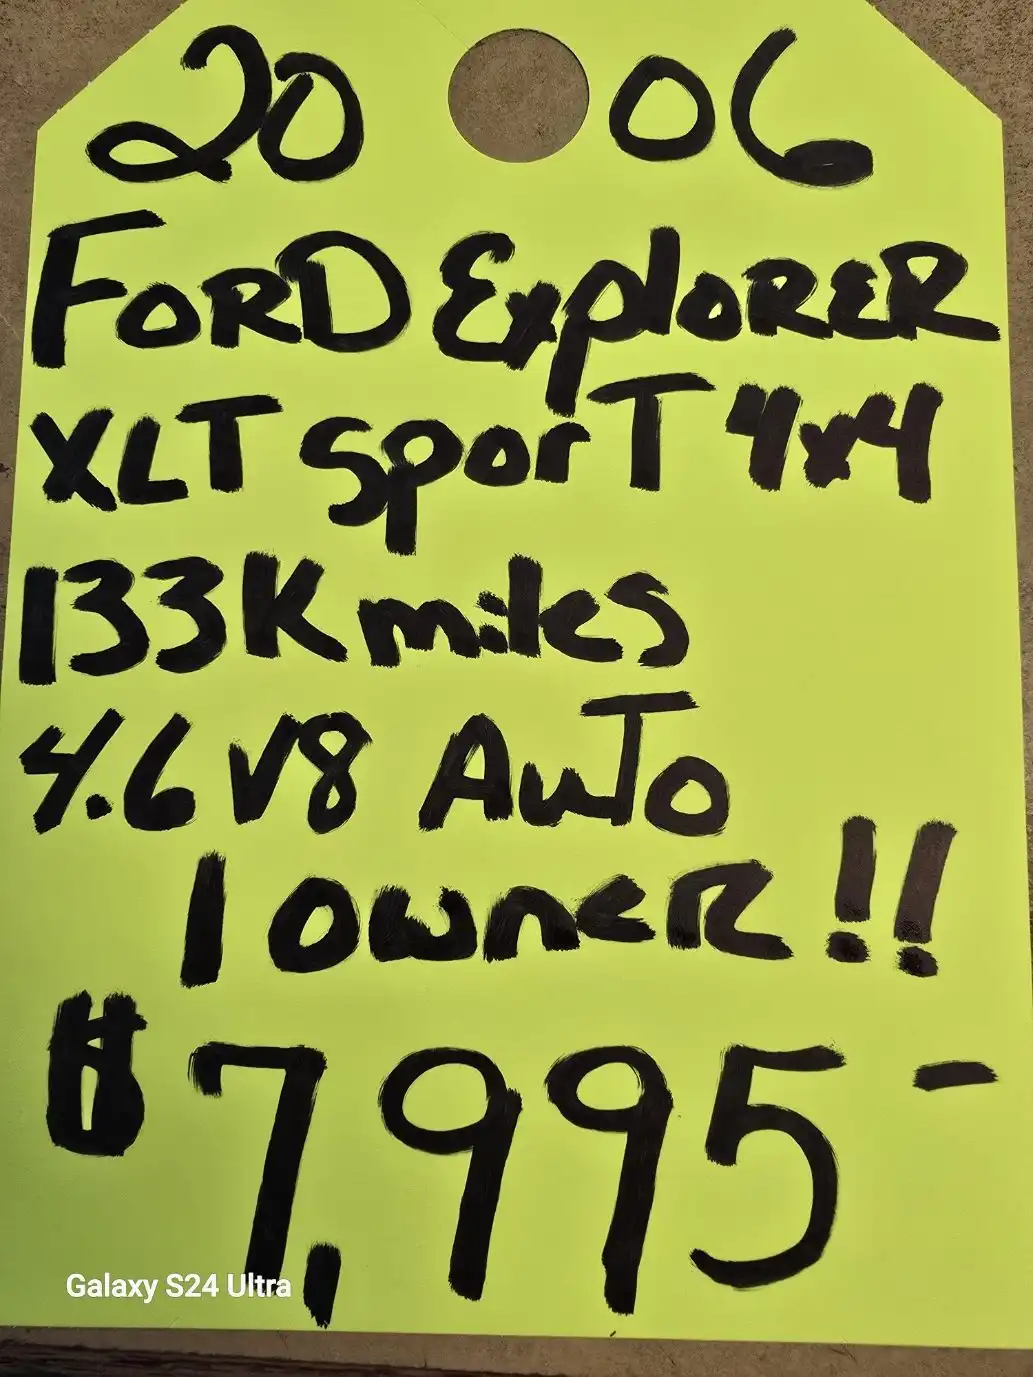 2006
FORD ExploRER
XLT sporT 4x4
133K miles
4.6 V8 AuTo
1 owneR!!
$7,995-
Galaxy S24 Ultra